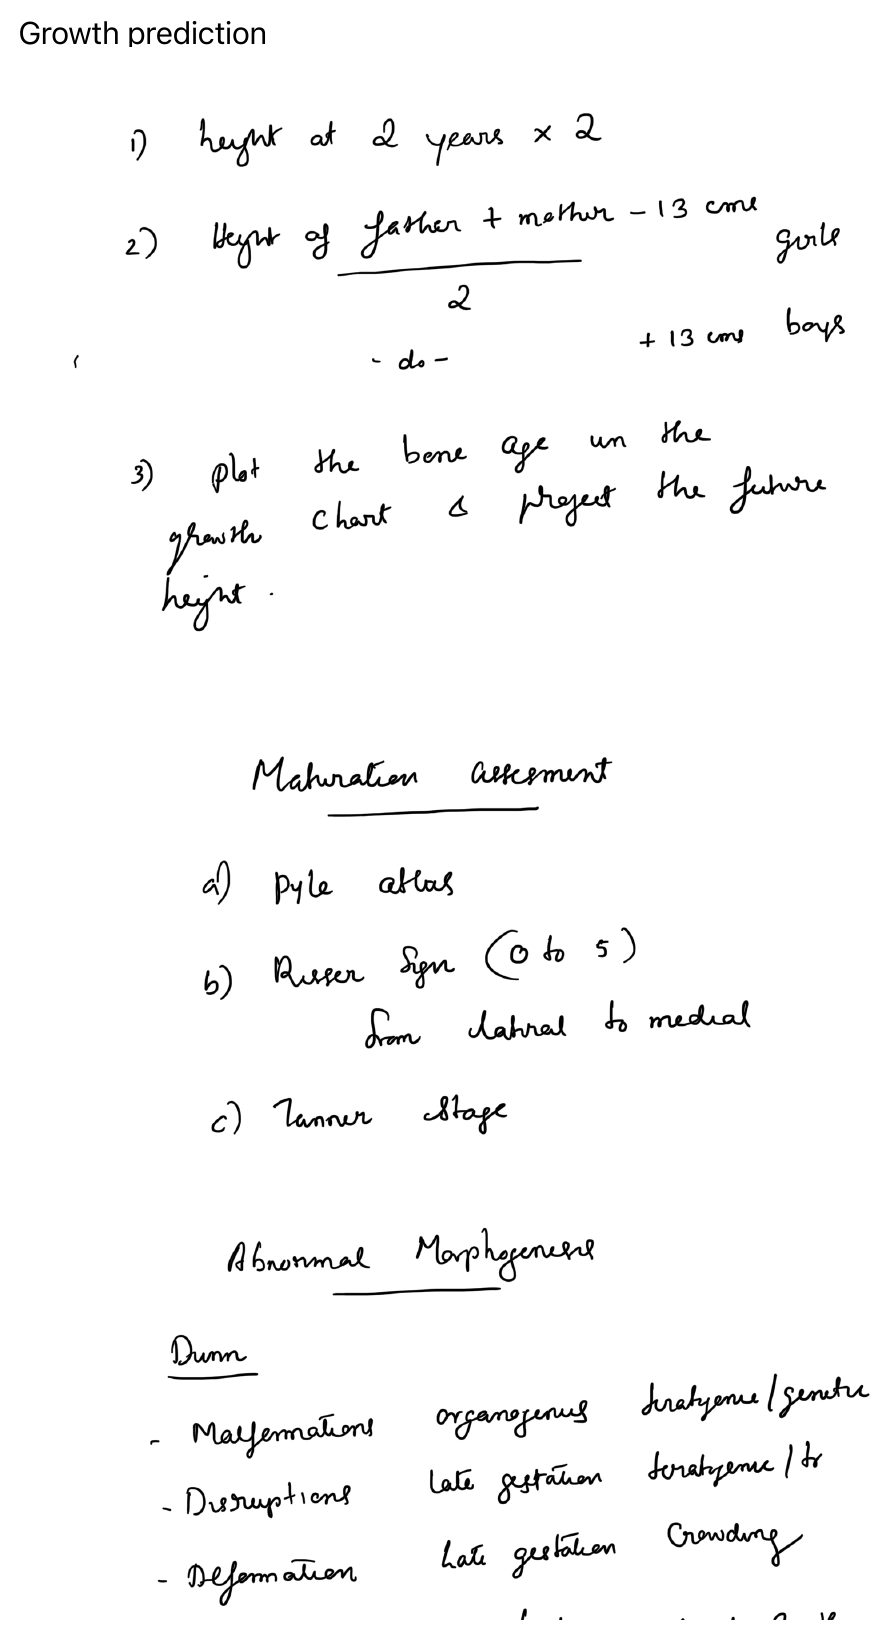 Growth prediction
1) height at 2 years x 2
2) Height of father + mother - 13 cms girls
2
- do - + 13 cms boys
3) plot the bone age in the
growth chart & project the future
height.
Maturation assesment
a) pyle atlas
b) Risser Sign (0 to 5)
from lateral to medial
c) Tanner Stage
Abnormal Morphogenesis
Dunn
- Malformations organogenesis teratogenic/genetic
- Disruptions late gestation teratogenic/tr
- Deformation Late gestation Crowding